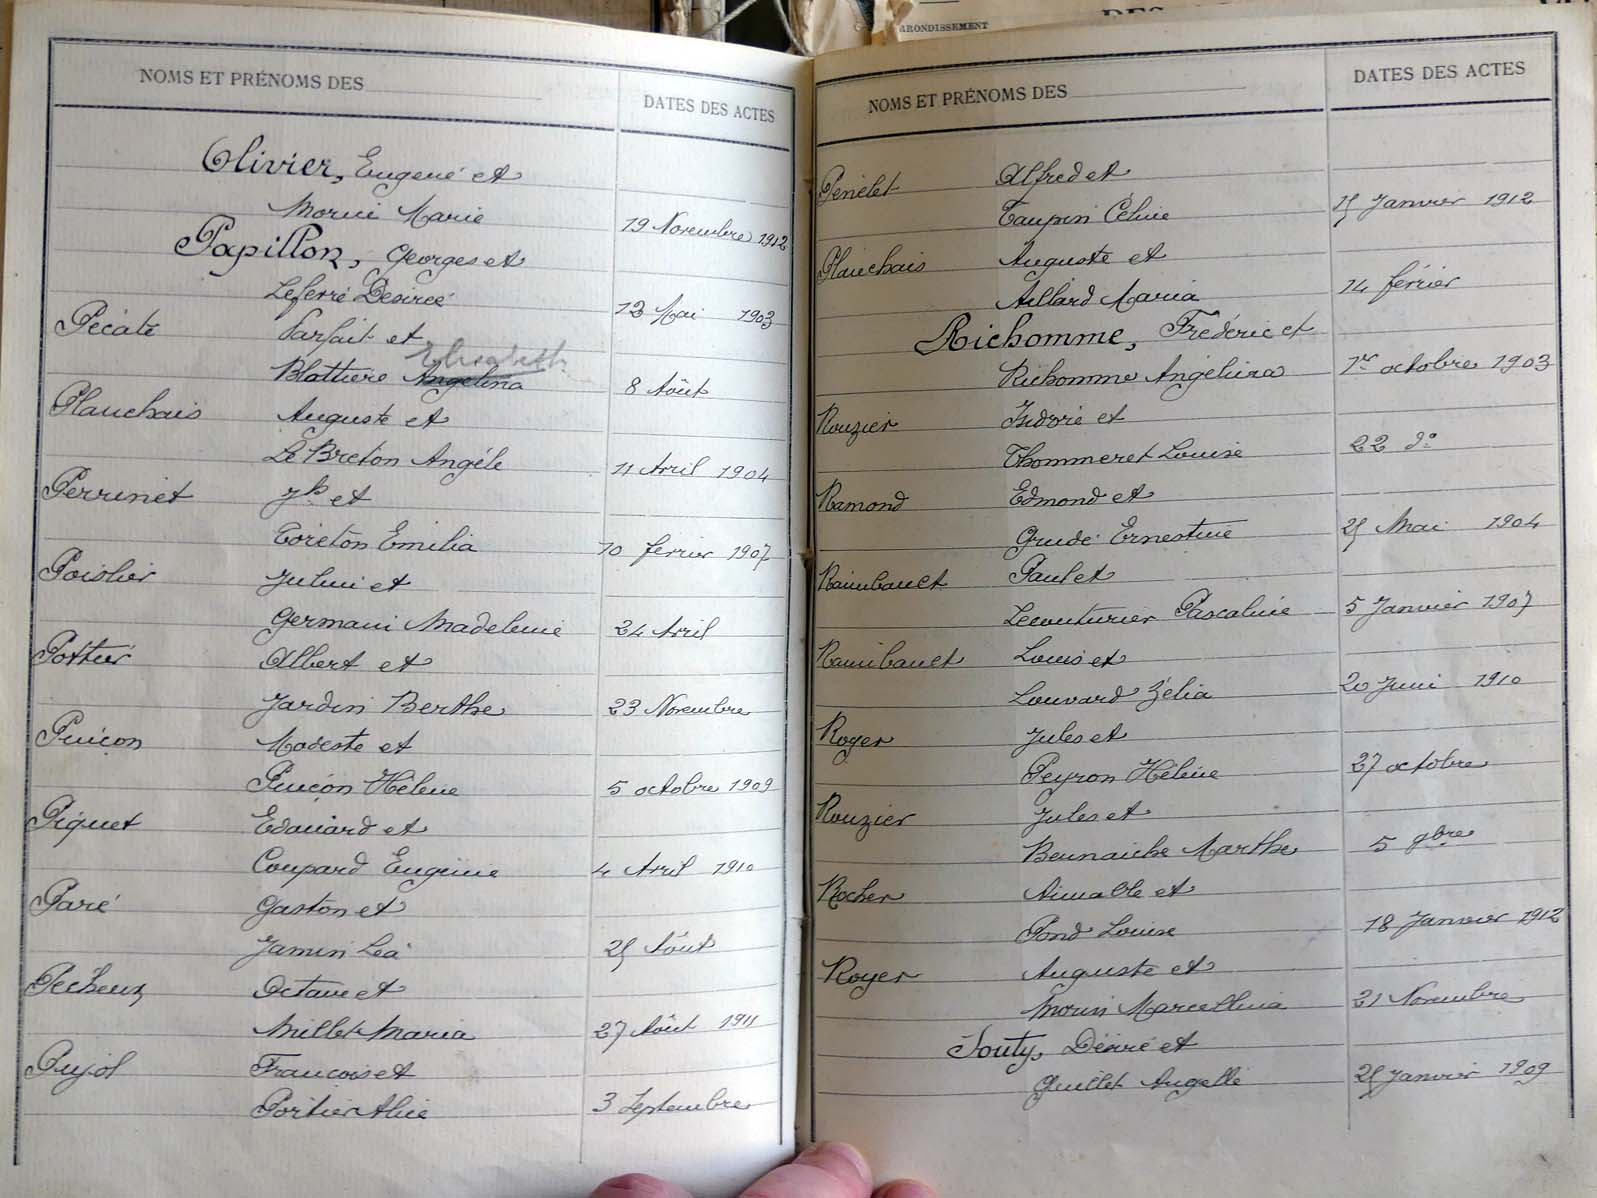 ARRONDISSEMENT
NOMS ET PRÉNOMS DES
DATES DES ACTES
Olivier, Eugène et
Morin Marie 19 Novembre 1912
Papillon, Georges et
Leferré Désirée 12 Mai 1903
Pécate Parfait et
Elisabeth
Blattière Angelina 8 Août
Plauchais Auguste et
Le Breton Angèle 11 Avril 1904
Perrinet Jh et
Toreton Emilia 10 février 1907
Poislier Julien et
Germain Madeleine 24 Avril
Pottier Albert et
Jardin Berthe 23 Novembre
Pinçon Modeste et
Pinçon Hélène 5 octobre 1909
Piquet Edouard et
Coupard Eugénie 4 Avril 1910
Paré Gaston et
Jamin Léa 25 Août
Pecheux Octave et
Millet Maria 27 Août 1911
Pujol François et
Portier Alice 3 Septembre
NOMS ET PRÉNOMS DES
DATES DES ACTES
Penelet Alfred et
Taupin Céline 15 Janvier 1912
Plauchais Auguste et
Aillard Maria 14 février
Richomme, Frédéric et
Richomme Angélina 1er octobre 1903
Rouzier Isidore et
Thommeret Louise 22 do
Ramond Edmond et
Grudé Ernestine 25 Mai 1904
Raimbault Paul et
Lecouturier Pascaline 5 Janvier 1907
Raimbault Louis et
Louvard Zélia 20 Juin 1910
Roger Jules et
Peyron Hélène 27 octobre
Rouzier Jules et
Bernaiche Marthe 5 9bre
Rocher Aimable et
Pond Louise 18 Janvier 1912
Royer Auguste et
Morin Marcellina 21 Novembre
Souty, Désiré et
Guillet Angelle 25 Janvier 1909